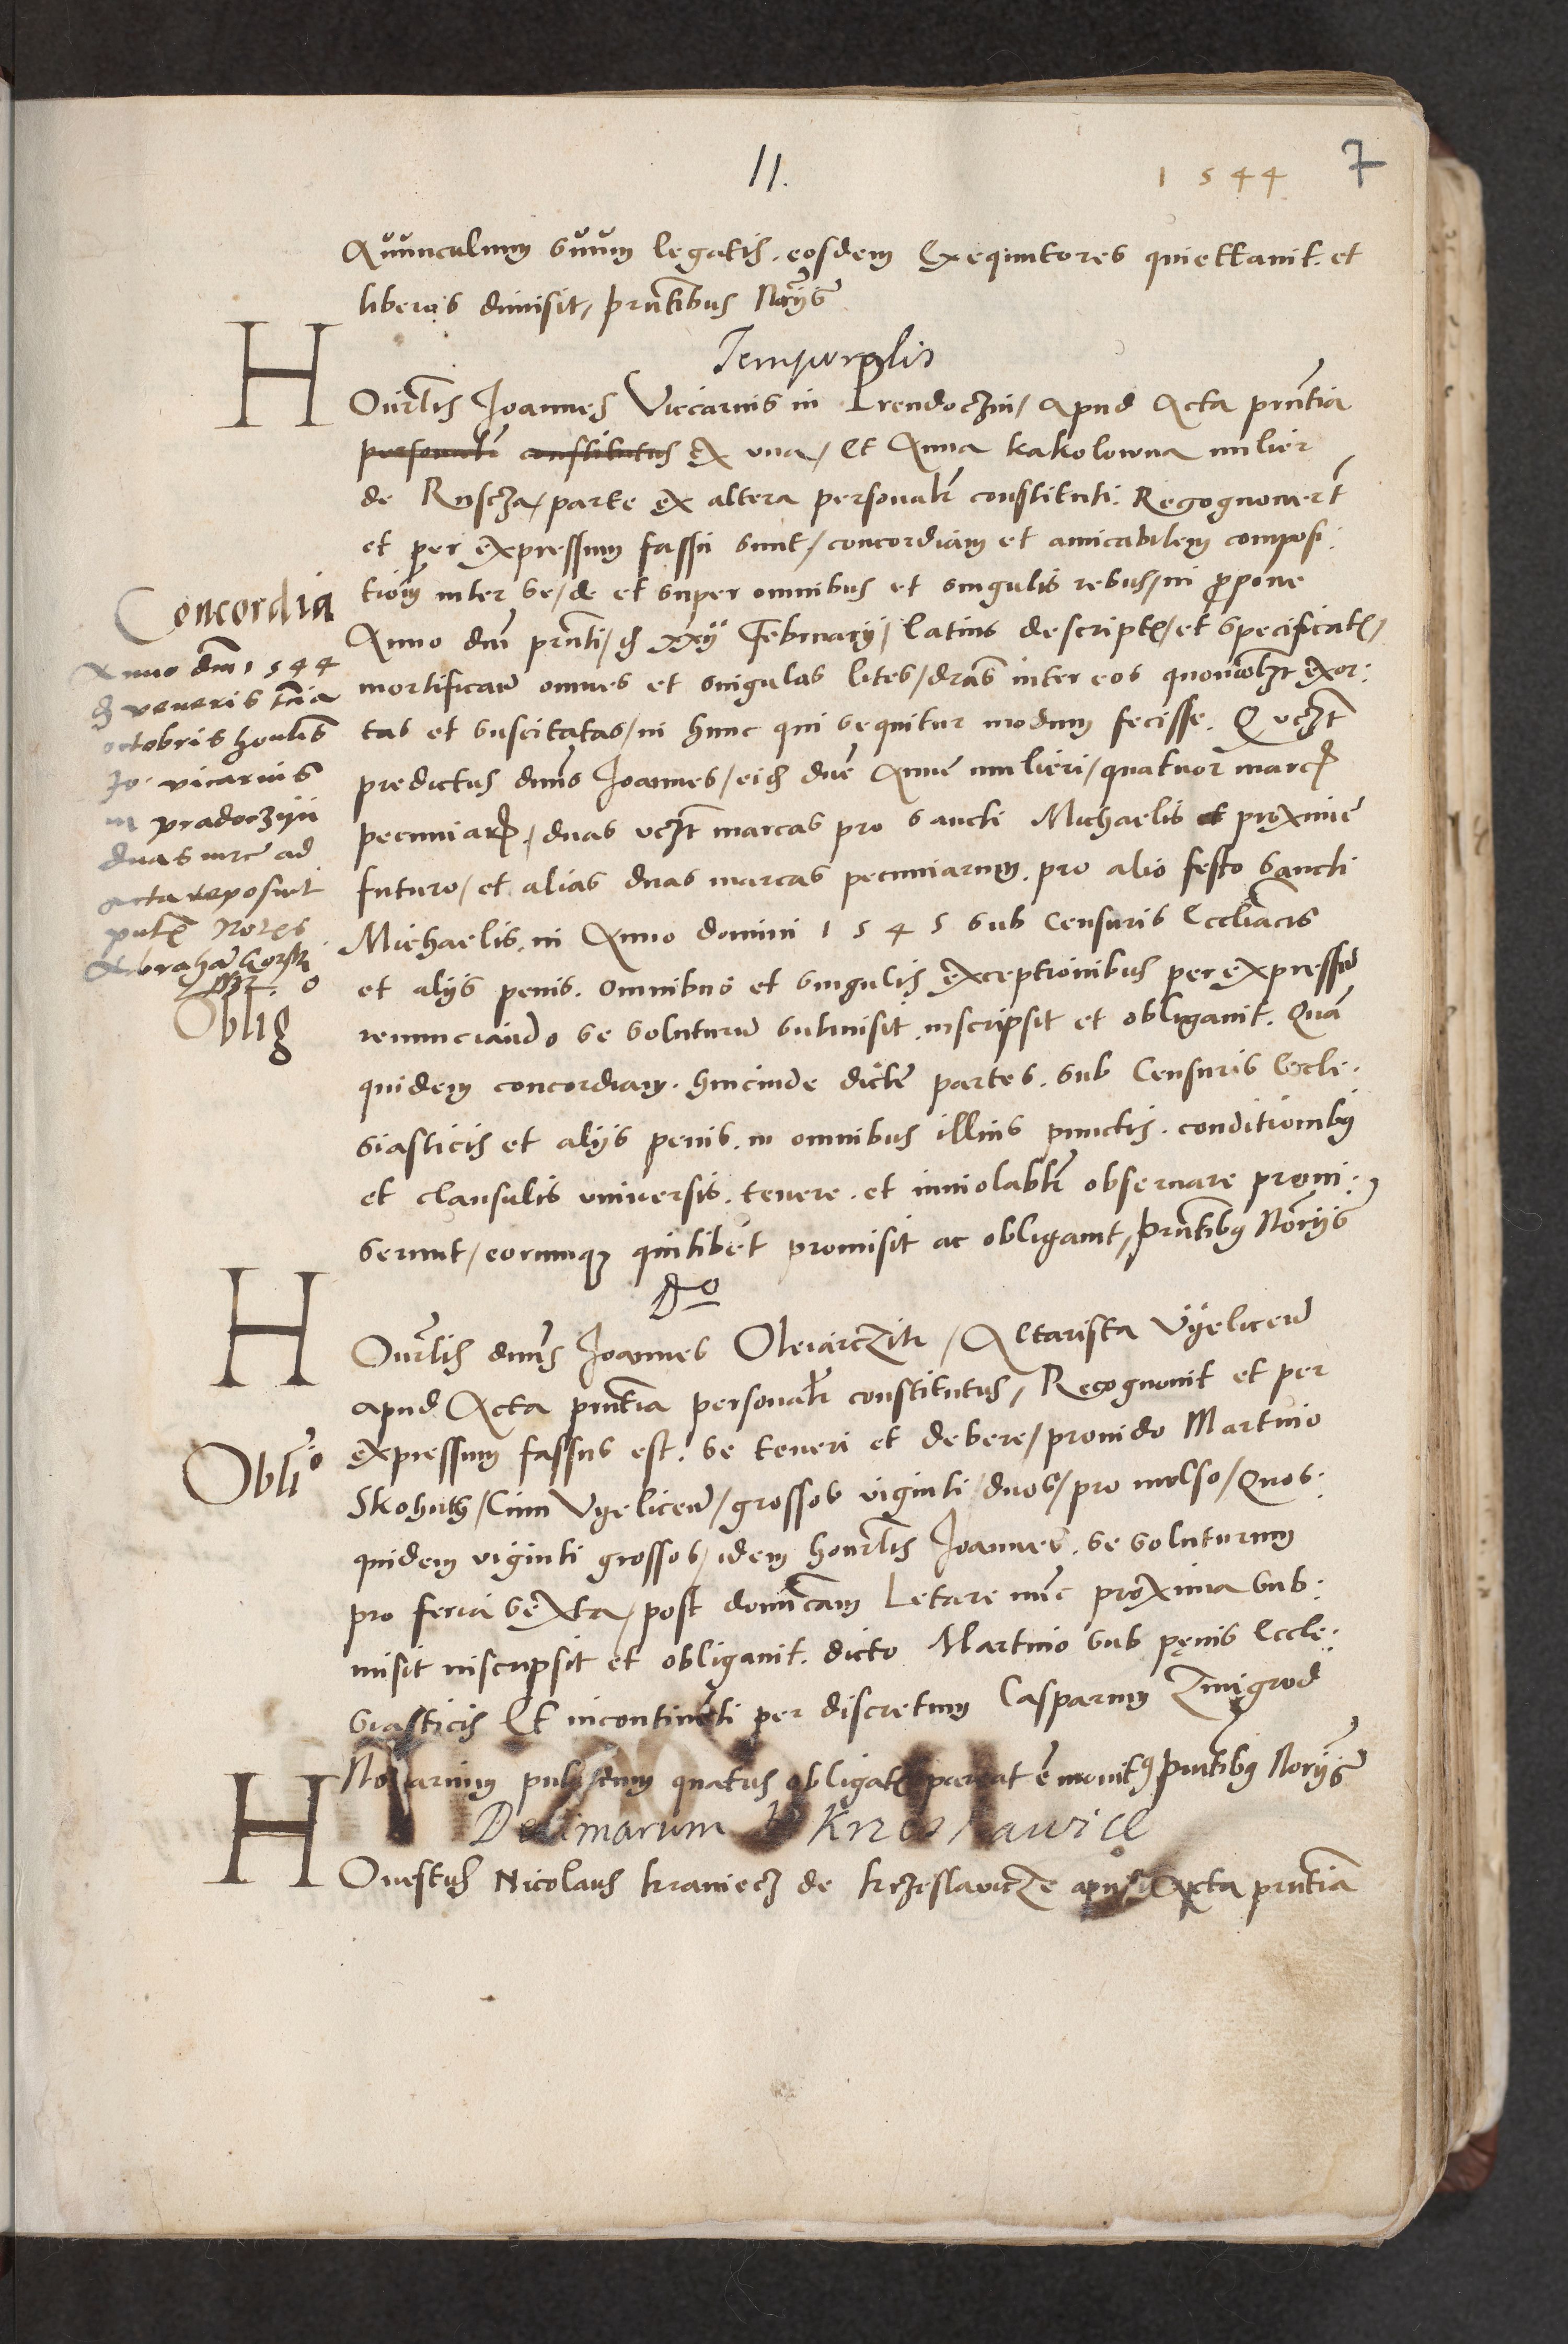 11.
1544
7
Auunculum suum legatis. eosdem Exequutores quiettauit. et
liberos dimisit, prntibus Norijs
Temporalis
HOnrlis Joannes Vicarius in Prendoczin / apud Acta prntia
personalr constitutus Ex vna / Et Anna kakolowna mulier
de Ruscza / parte ex altera personalr constituti. Regognouert
et per expressum fassi sunt / concordiam et amicabilem composi:
tiom inter se / de et super omnibus et singulis rebus / in prone
Anno dni prnti / d xxij Februarij / latius descript et specificat /
mortificam omnes et singulas lites / dras inter eos quouobzt exor:
tas et suscitatas / in hunc qui sequitur modum fecisse. Q vczt
predictus dnus Joannes / eid dne Anne mulieri / quatuor marc
pecuniar. / duas vczt marcas pro Sancti Michaelis et proxime
futuro / et alias duas marcas pecuniarum. pro alio festo Sancti
Michaelis. in Anno domini 1545 sub Censuris Eccliacis
et alijs penis. omnibus et singulis exceptionibus per expressum
renunciando se soluturum submisit. inscripsit et obligauit. Quam
quidem concordiam. hincinde dicte partes. sub Censuris Eccle:
siasticis et alijs penis. in omnibus illius punctis. conditionibus
et clausulis vniuersis. tenere. et inuiolablr obseruare promi:
serunt / eorumque quilibet promisit ac obligauit, prntibus Norijs
Concordia
Anno dni 1544
d veneris tcia
octobris honlis
Jo. vicarius
in pradoczyn
duas mrc ad
acta reposuit
pnte Notes
Abraham Gorski
Oblig
HOnrlis dnus Joannes Oleiarczik / Altarista Vyelicen
apud Acta prntia personalr constitutus / Recognouit et per
expressum fassus est. se teneri et debere / prouido Martino
Skohuth / Ciui Vyelicen / grossos viginti / duos / pro mulso / Quos:
quidem viginti grossos / idem honrlis Joannes. se soluturum
pro feria sexta / post domicam Letare nunc proxima sub:
misit inscripsit et obligauit. dicto Martino sub penis Eccle:
siasticis Et incontinenti per discretum Casparum Zmigrod
Notarium publicum quatus obligat pareat e monit prntibus Norijs
Oblio
Decimarum Krzeslawice
HOnestus Nicolaus kraniecz de krzeslawicze apud Acta prntia